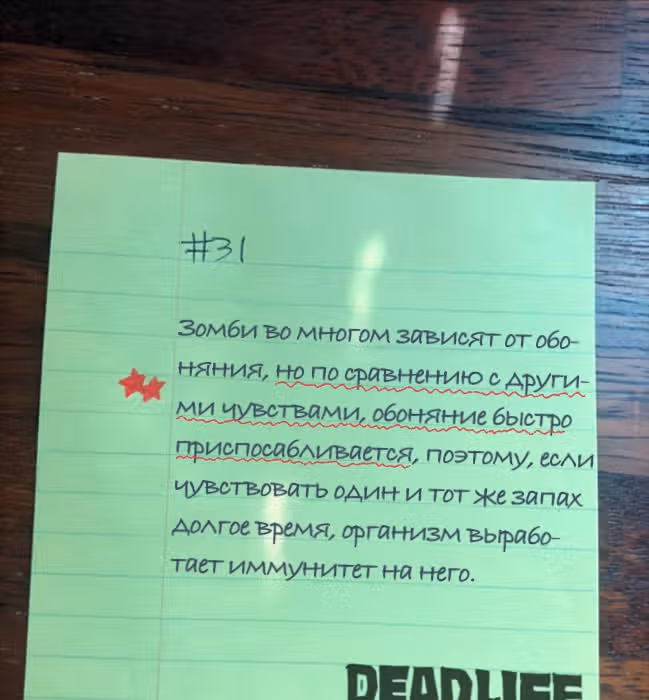 #31
Зомби во многом зависят от обо-
няния, но по сравнению с други-
ми чувствами, обоняние быстро
приспосабливается, поэтому, если
чувствовать один и тот же запах
долгое время, организм вырабо-
тает иммунитет на него.
DEADLIFE